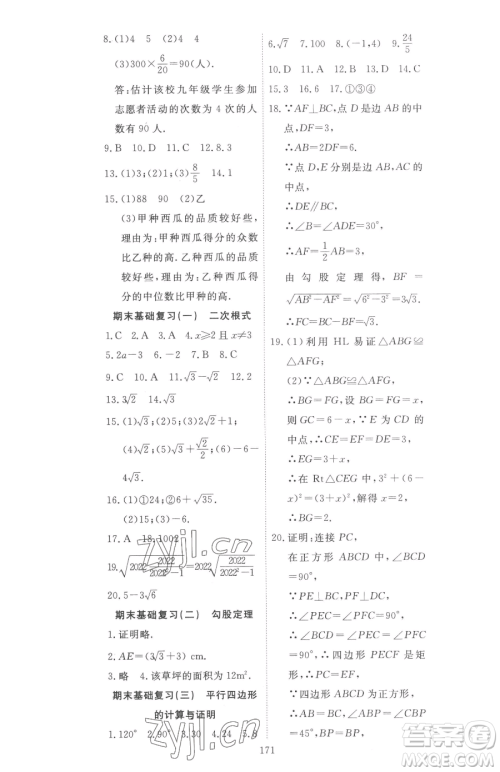 8.(1)4　5　(2)4　4
(3)300×6/20=90(人).
答:估计该校九年级学生参加
志愿者活动的次数为 4 次的人
数有 90 人.
9.B　10.D　11.A　12.8.3
13.(1)3;(2)1;(3)8/5　14.1
15.(1)88　90　(2)乙
(3)甲种西瓜的品质较好些,
理由为:甲种西瓜得分的众数
比乙种的高.乙种西瓜的品质
较好些,理由为:乙种西瓜得
分的中位数比甲种的高.
期末基础复习(一)　二次根式
1.C　2.A　3.A　4.x≥2 且 x≠3
5.2a-3　6.D　7.D　8.D
9.C　10.A　11.√3-√2　12.2
13.6√3　14.√3
15.(1)5;(2)5√3+√2/2;(3)6-
4√3.
16.(1)①24;②6+√35.
(2)15;(3)-6.
17.A　18.1002
19.√(2022+2022/(2022²-1))=2022√(2022/(2022²-1))
20.5-3√6
期末基础复习(二)　勾股定理
1.证明略.
2.AE=(3√3+3)cm.
3.略　4.该草坪的面积为 12m².
期末基础复习(三)　平行四边形
的计算与证明
1.120°　2.90　3.24　4.5　5.8
6.√7　7.100　8.(-4,3)　9.24/5
10.D　11.A　12.D　13.C　14.A
15.3　16.6　17.①③④
18.∵AF⊥BC,点 D 是 AB 的中
点,DF=3,
∴AB=2DF=6.
∵点 D,E 分别是边 AB,AC 的
中点,
∴DE∥BC,
∴∠B=∠ADE=30°,
∴AF=1/2AB=3.
由 勾 股 定 理 得, BF =
√(AB²-AF²)=√(6²-3²)=3√3.
19.(1)利用 HL 易证△ABG≌△
AFG;
(2)∵△ABG≌△AFG,
∴BG=FG.
设 BG=FG=x,则 GC=6-x,
∵E 为 CD 的中点,
∴CE=EF=DE=3,
∴EG=3+x,
∴在 Rt△CEG 中,3²+(6-
x)²=(3+x)²,解得 x=2,
∴BG=2.
20.证明:连接 PC,
在正方形 ABCD 中,∠BCD
=90°,
∵PE⊥BC,PF⊥DC,
∴∠PEC=∠PFC=90°,
∴四边形 PECF 是矩形,
∴PC=EF.
∵四边形 ABCD 是正方形,
∴AB=BC,∠ABP=∠CBP
=45°,∵BP=BP,
171
zyjl.cn